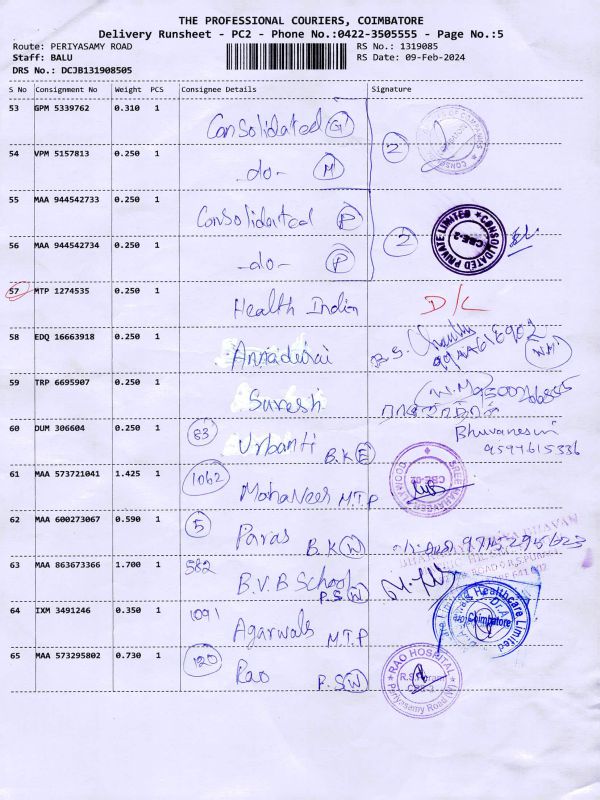 THE PROFESSIONAL COURIERS, COIMBATORE
Delivery Runsheet - PC2 - Phone No.:0422-3505555 - Page No.:5
Route: PERIYASAMY ROAD
RS No.: 1319085
Staff: BALU
RS Date: 09-Feb-2024
DRS No.: DCJB131908505
S No Consignment No Weight PCS Consignee Details Signature
53 GPM 5339762 0.310 1 Consolidated G 2
54 VPM 5157813 0.250 1 -do- M
55 MAA 944542733 0.250 1 Consolidated P 2 CONSOLIDATED PRIVATE LIMITED CBE-2
56 MAA 944542734 0.250 1 -do- P
57 MTP 1274535 0.250 1 Health India D/L
58 EDQ 16663918 0.250 1 Annadurai
59 TRP 6695907 0.250 1 Suresh
60 DUM 306604 0.250 1 83 Urbanti B.K E Bhuvaneswi 9597615336
61 MAA 573721041 1.425 1 1062 Mahaveer M.T.P
62 MAA 600273067 0.590 1 5 Paras B.K W
63 MAA 863673366 1.700 1 582 B.V.B School P.S W
64 IXM 3491246 0.350 1 1091 Agarwals M.T.P Healthcare Limited Coimbatore
65 MAA 573295802 0.730 1 120 Rao P.S W RAO HOSPITAL Periyasamy Road (W)